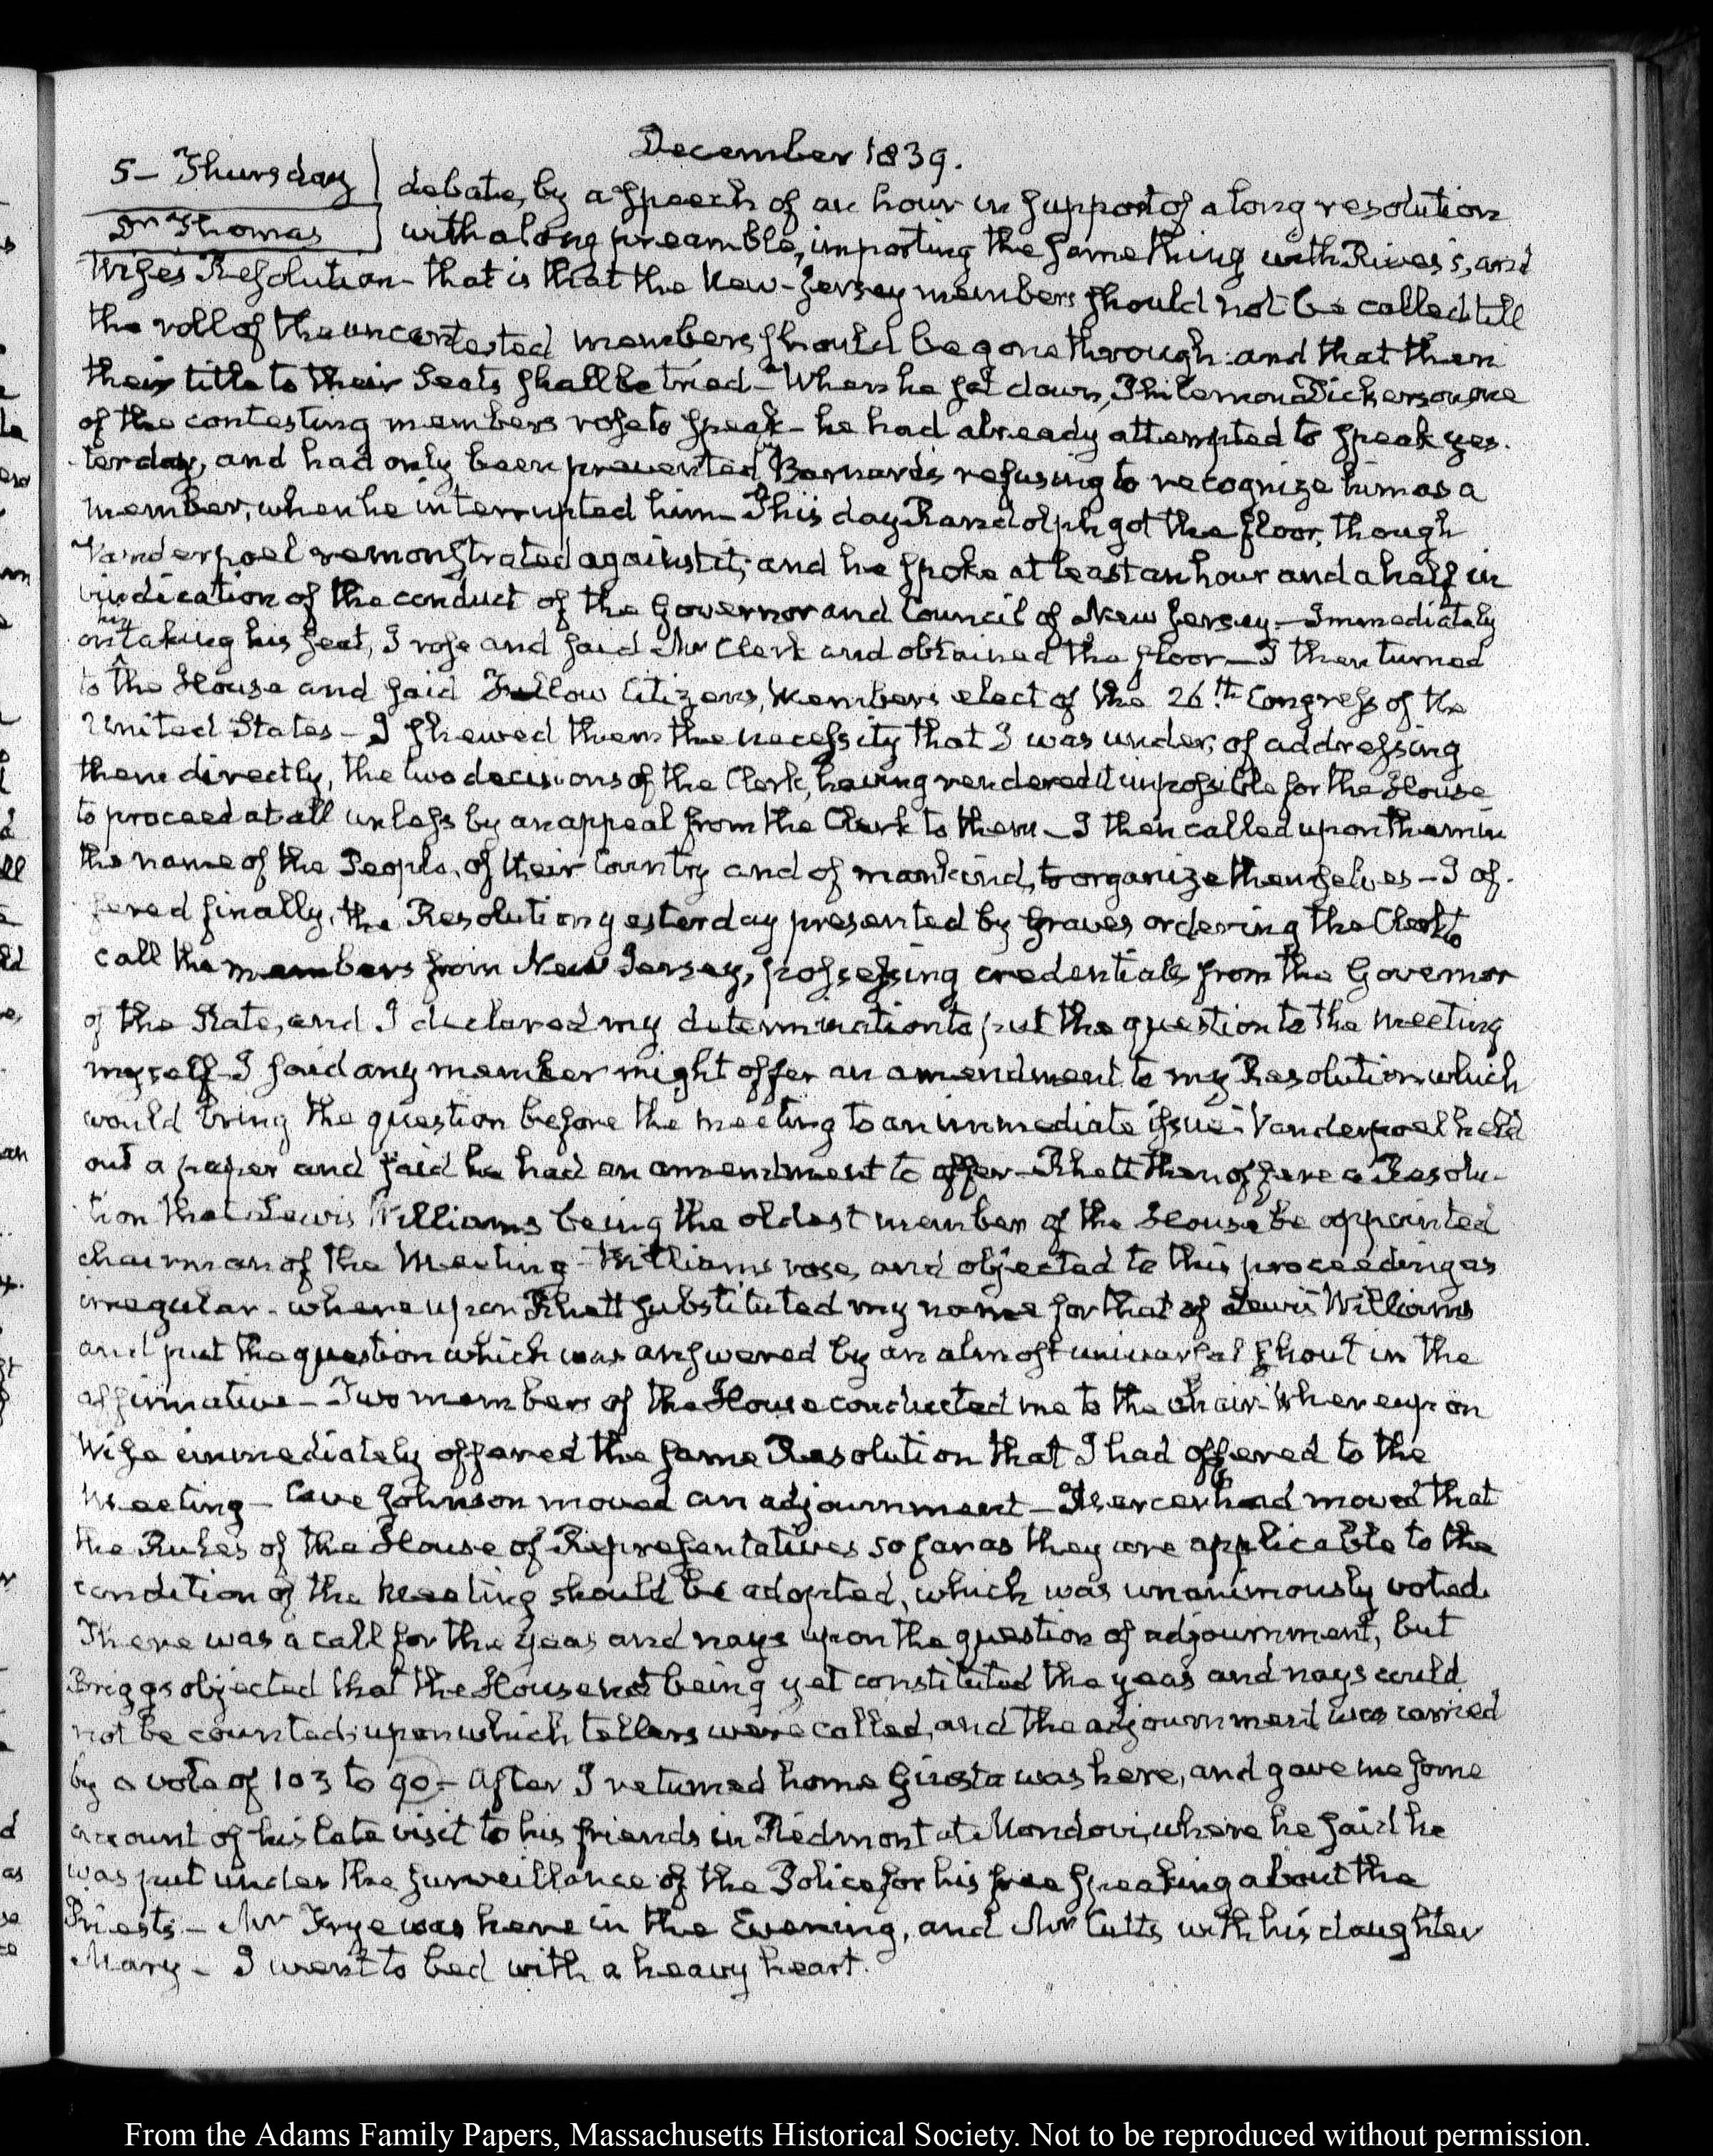 December 1839.
5- Thursday
Dr Thomas
debate, by a speech of an hour in support of a long resolution
with a long preamble, importing the same thing with Rives's, and
Wise's Resolution- that is that the New-Jersey members should not be called till
the roll of the uncontested members should be gone through: and that then
their title to their Seats shall be tried- When he sat down, Philemon Dickerson one
of the contesting members rose to speak- he had already attempted to speak yes-
terday, and had only been prevented, Barnard's refusing to recognize him as a
member, when he interrupted him- This day Randolph got the floor, though
Vanderpoel remonstrated against it; and he spoke at least an hour and a half in
vindication of the conduct of the Governor and Council of New Jersey.- Immediately
on his taking his seat, I rose and said Mr Clerk and obtained the floor- I then turned
to the House and said Fellow Citizens, Members elect of the 26th Congress of the
United States- I shewed them the necessity that I was under, of addressing
them directly, the two decisions of the Clerk, having rendered it impossible for the House
to proceed at all unless by an appeal from the Clerk to them- I then called upon them in
the name of the People, of their Country and of mankind, to organize themselves- I of-
fered finally, the Resolution yesterday presented by Graves ordering the Clerk to
call the members from New Jersey, possessing credentials from the Governor
of the State, and I declared my determination to put the question to the meeting
myself- I said any member might offer an amendment to my Resolution which
would bring the question before the meeting to an immediate issue- Vanderpoel held
out a paper and said he had an amendment to offer- Rhett then offere a Resolu-
tion that Lewis Williams being the oldest member of the House be appointed
chairman of the Meeting- Williams rose, and objected to this proceeding as
irregular- whereupon Rhett substituted my name for that of Lewis Williams
and put the question which was answered by an almost universal shout in the
affirmative- Two members of the House conducted me to the chair- Whereupon
Wise immediately offered the same Resolution that I had offered to the
Meeting- Cave Johnson moved an adjournment- Mercer had moved that
the Rules of the House of Representatives so far as they are applicable to the
condition of the Meeting should be adopted, which was unanimously voted
There was a call for the yeas and nays upon the question of adjournment, but
Briggs objected that the House not being yet constituted the yeas and nays could
not be counted; upon which tellers were called, and the adjournment was carried
by a vote of 103 to 90- After I returned home Giusta was here, and gave me some
account of his late visit to his friends in Piedmont at Mondovi, where he said he
was put under the surveillance of the Police for his free speaking about the
Priests- Mr Frye was here in the Evening, and Mr Cutts with his daughter
Mary- I went to bed with a heavy heart.
From the Adams Family Papers, Massachusetts Historical Society. Not to be reproduced without permission.